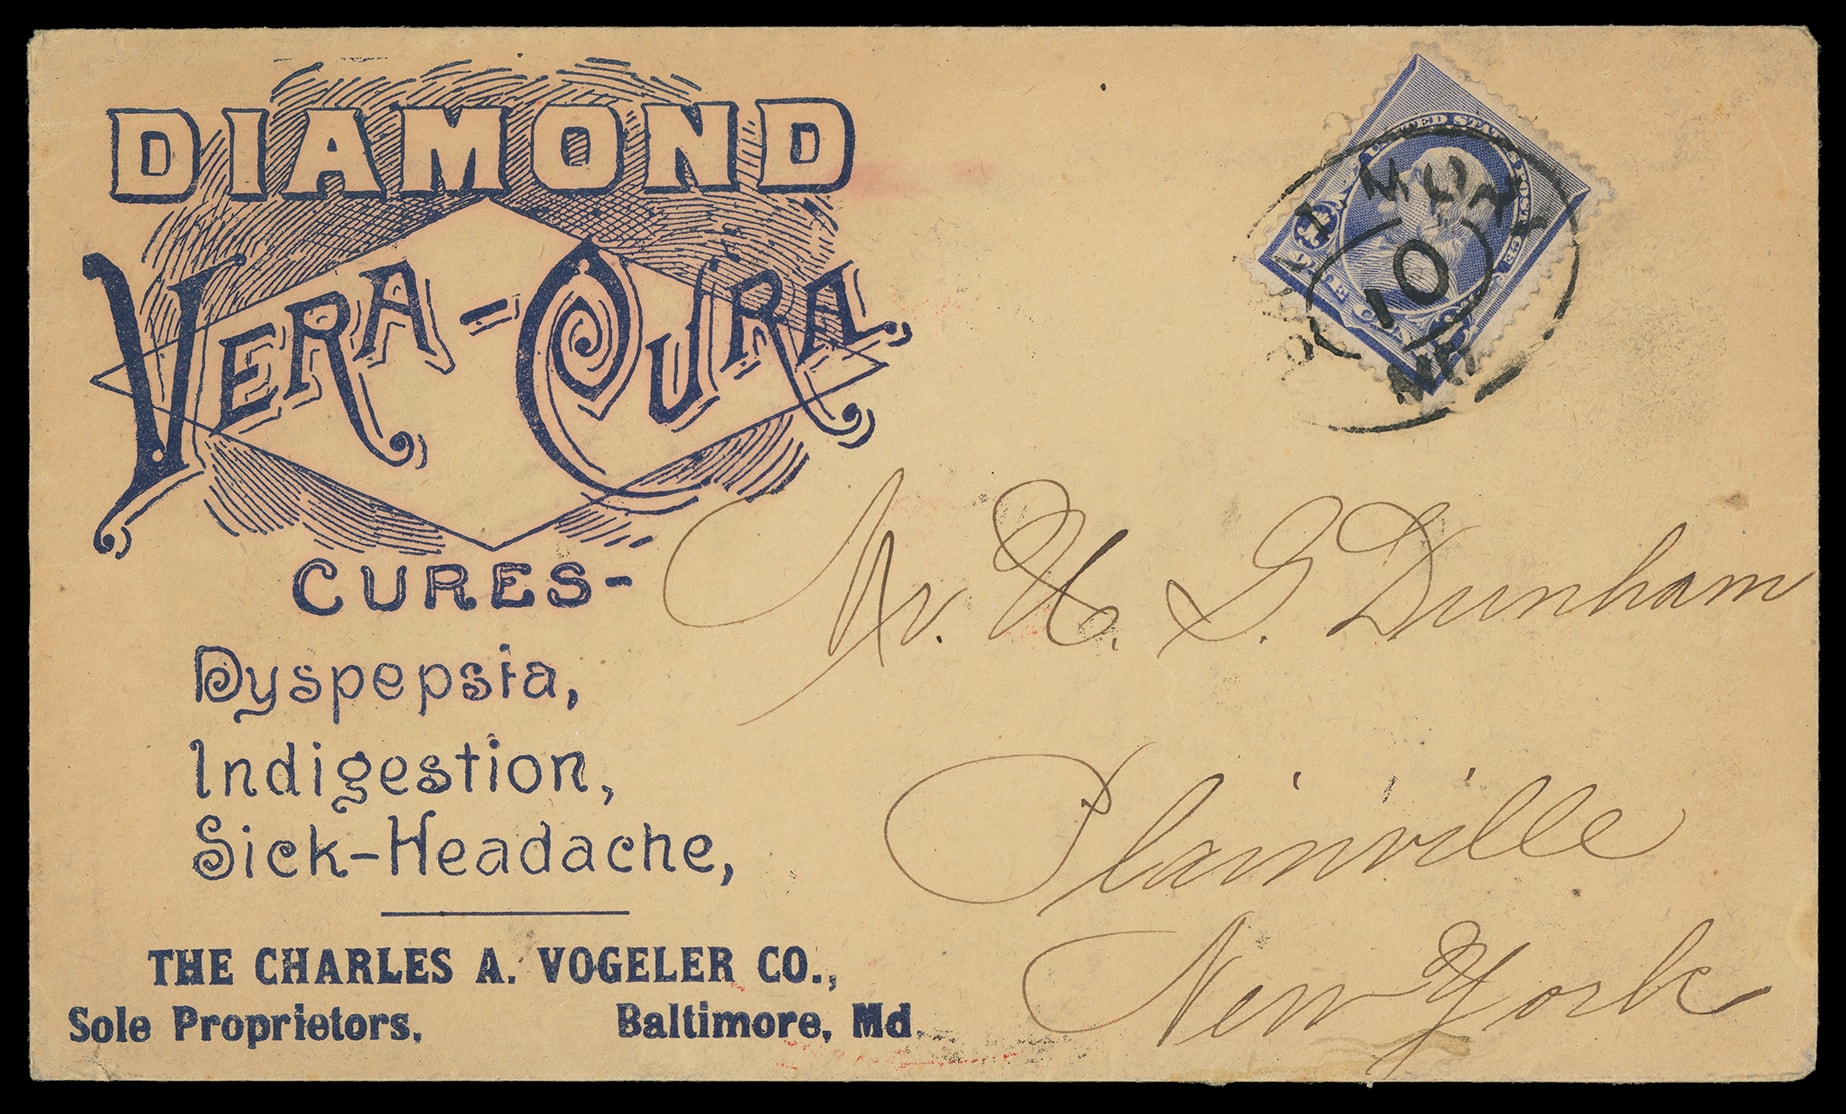 DIAMOND
VERA-CURA
CURES-
Dyspepsia,
Indigestion,
Sick-Headache,
THE CHARLES A. VOGELER CO.,
Sole Proprietors. Baltimore, Md.
UNITED STATES POSTAGE
10
Mr. H. S. Dunham
Plainville
New York